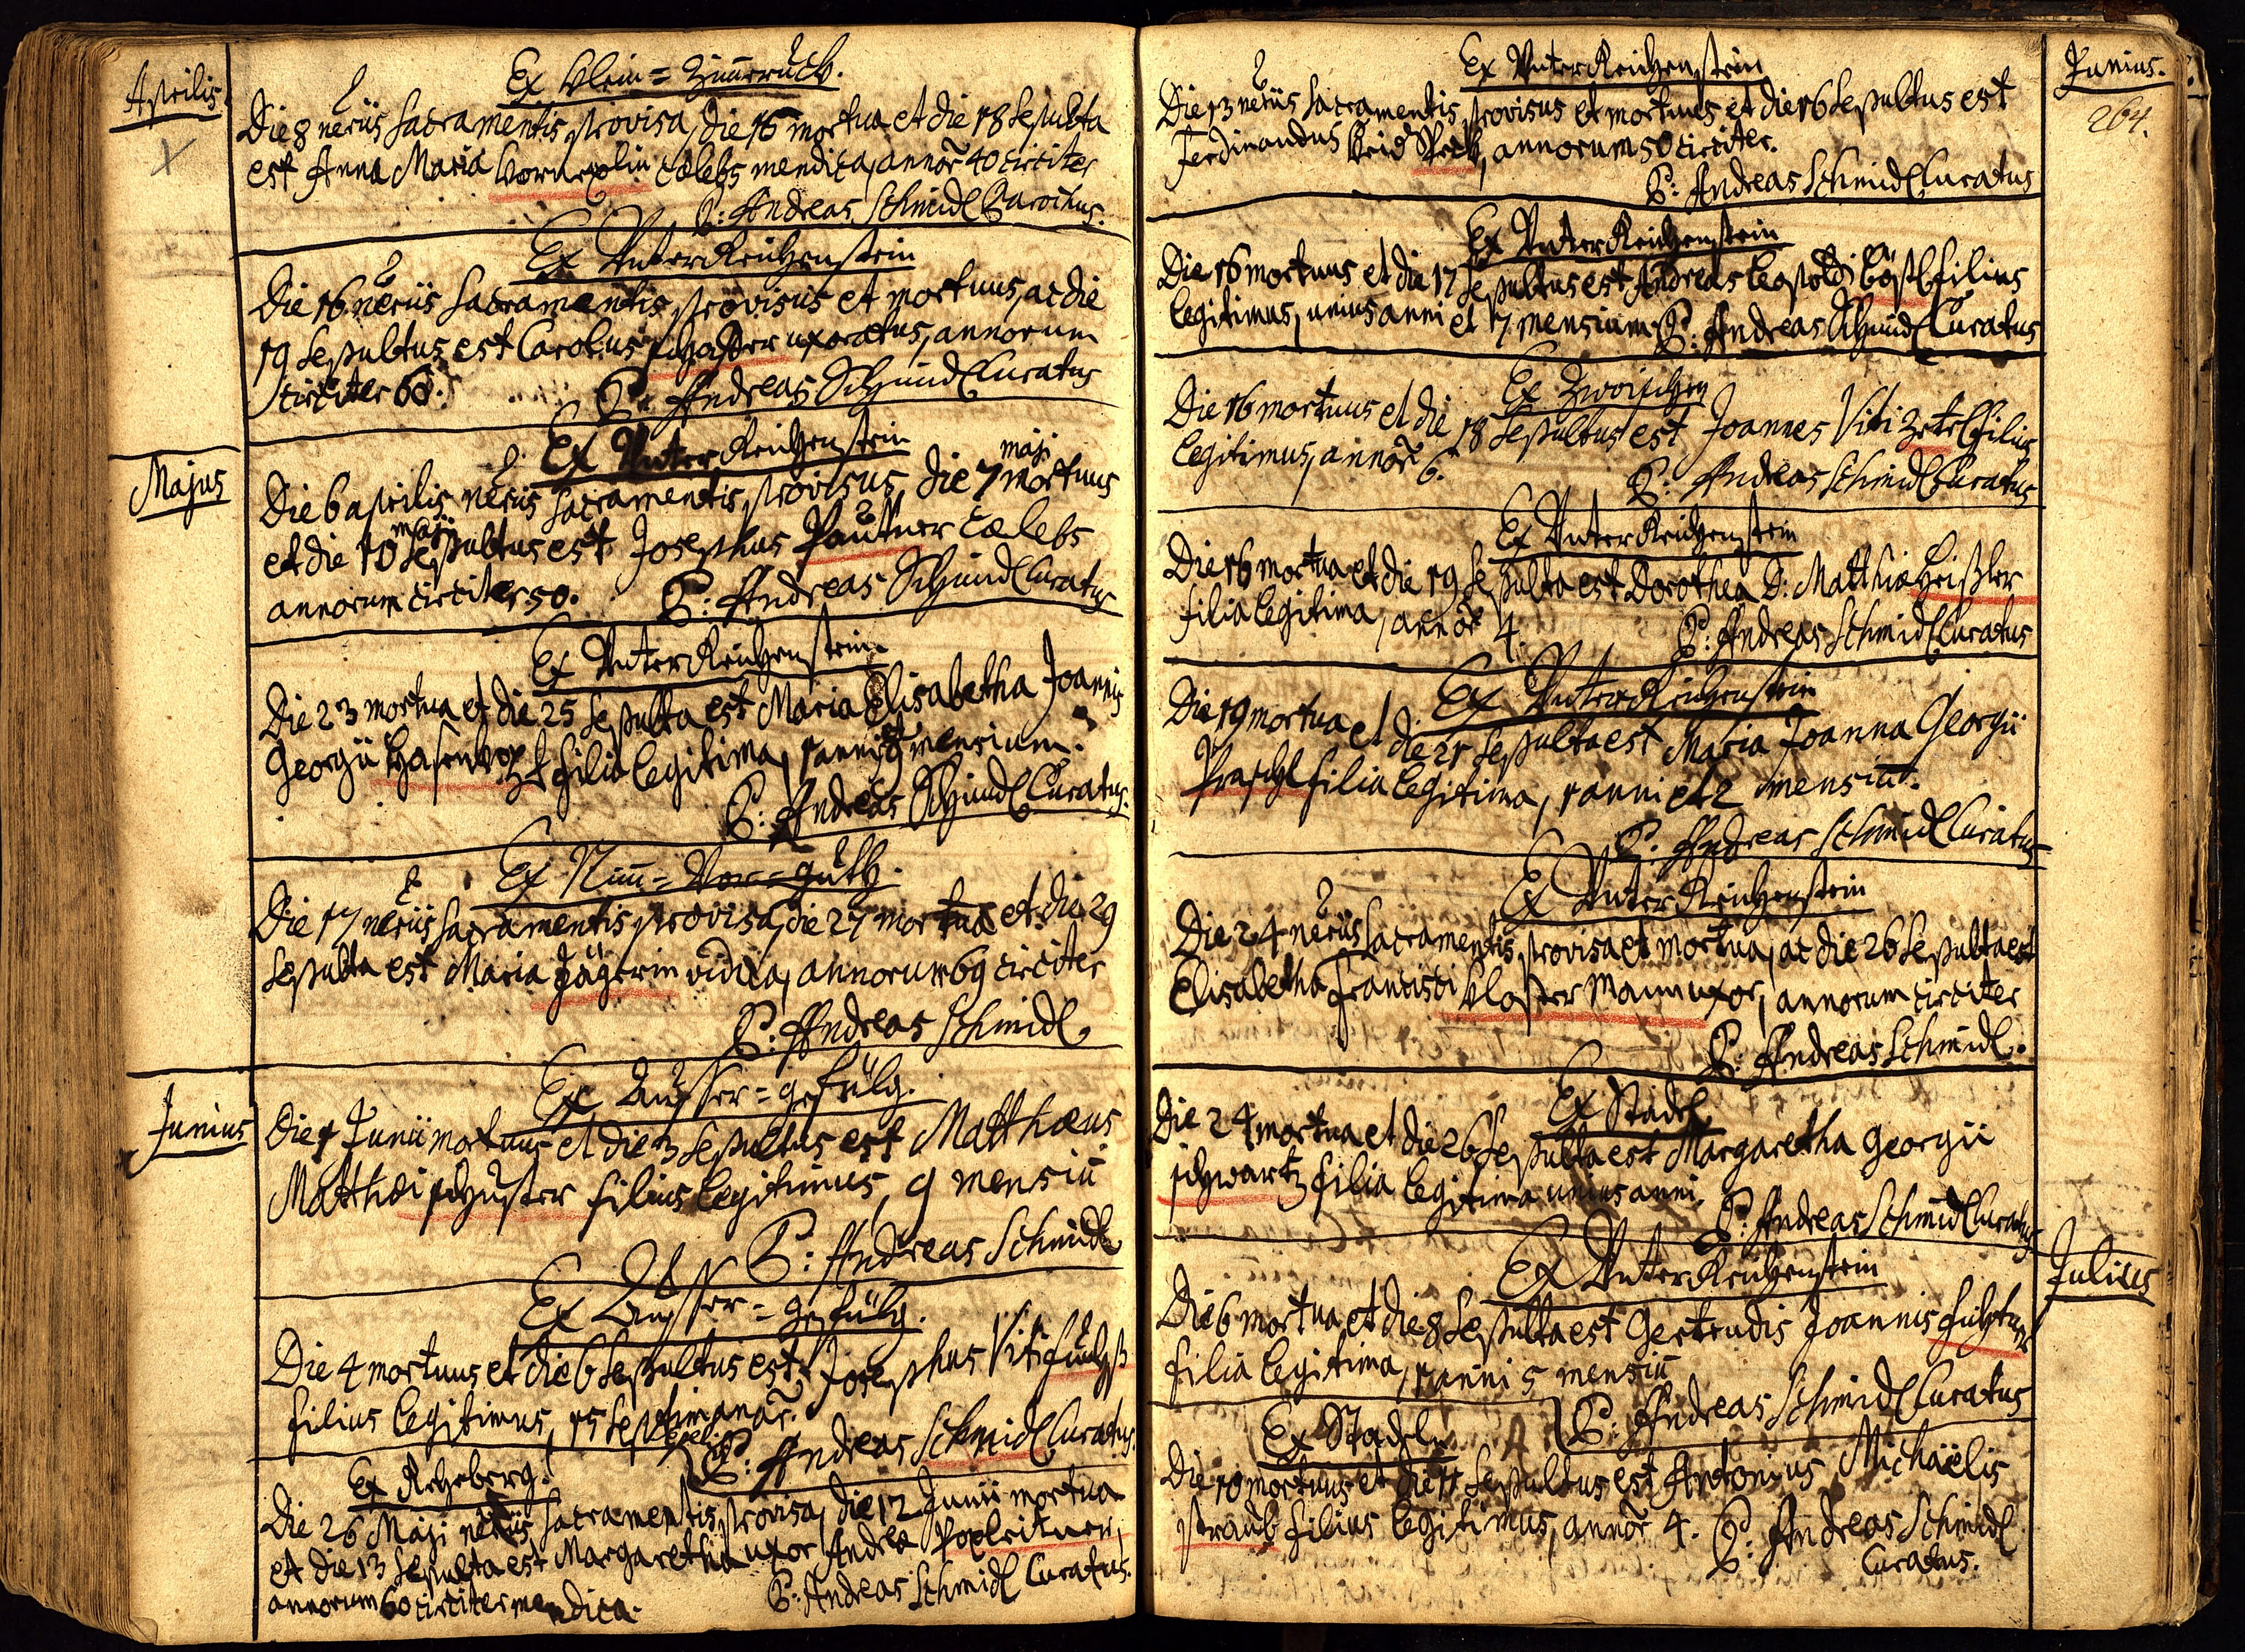 Aprilis.
Ex Klein=Zimeruck.
Die 8 neriis Sacramentis provisa, die 16 mortua et die 18 Sepulta
est Anna Maria cælebs mendica, annor 40 circiter
P: Andreas Schmidl Parochus.
Ex Unter Reichenstein
Die 16 neriis Sacramentis provisus et mortuus, ac die
19 Sepultus est Carolus uxoratus, annorum
circiter 60. P: Andreas Schmidl Curatus
Majus
Ex Unter Reichenstein
Die 6 aprilis neriis Sacramentis provisus, die 7 maji mortuus
et die 10 maji Sepultus est Josephus Pautner cælebs
annorum circiter 50. P: Andreas Schmidl Curatus
Ex Unter Reichenstein
Die 23 mortua et die 25 Sepulta est Maria Elisabetha Joannis
Georgii filia legitima, 1 anni et mensium.
P: Andreas Schmidl Curatus.
Ex
Die 17 neriis Sacramentis provisa, die 27 mortua et die 29
Sepulta est Maria Jägerin vidua, annorum 69 circiter
P: Andreas Schmidl
Junius
Ex Ausser=gefülg.
Die 1 Junii mortuus et die 3 Sepultus est Matthæus
Matthæi schuster filius legitimus, 9 mensiu
P: Andreas Schmidl
Ex Ausser=gefülg.
Die 4 mortuus et die 6 Sepultus est Josephus Viti
filius legitimus, 15 Septimanar.
P: Andreas Schmidl Curatus.
Ex Rehberg.
Die 26 Maji neriis Sacramentis provisa, die 12 Junii mortua
et die 13 Sepulta est Margaretha uxor Andreæ Poxleitner,
annorum 60 circiter mendica. P: Andreas Schmidl Curatus.
Junius.
264.
Ex Unter Reichenstein
Die 13 neriis Sacramentis provisus et mortuus et die 16 Sepultus est
Ferdinandus annorum 50 circiter.
P: Andreas Schmidl Curatus
Ex Unter Reichenstein
Die 16 mortuus et die 17 Sepultus est Andreas Leopoldi filius
legitimus, unius anni et 7 mensium P: Andreas Schmidl Curatus
Ex Zwoischen
Die 16 mortuus et die 18 Sepultus est Joannes Viti Zetl filius
legitimus, annor 6.
P: Andreas Schmidl Curatus
Ex Unter Reichenstein
Die 16 mortua et die 19 Sepulta est Dorothea D: Matthiæ
filia legitima, annor 4.
P: Andreas Schmidl Curatus
Ex Unter Reichenstein
Die 19 mortua et die 21 Sepulta est Maria Joanna Georgii
Praschl filia legitima, 1 anni et 2 mensiu.
P: Andreas Schmidl Curatus
Ex Unter Reichenstein
Die 24 neriis Sacramentis provisa et mortua, ac die 26 Sepulta est
Elisabetha Francisci Kloster Mann uxor, annorum circiter
P: Andreas Schmidl.
Ex Stadl
Die 24 mortua et die 26 Sepulta est Margaretha Georgii
schwartz filia legitima unius anni.
P: Andreas Schmidl Curatus
Julius
Ex Unter Reichenstein
Die 6 mortua et die 8 Sepulta est Gertrudis Joannis
filia legitima, 1 anni 5 mensiu
P: Andreas Schmidl Curatus
Ex Stadln
Die 10 mortuus et die 11 Sepultus est Antonius Michaëlis
straub filius legitimus, annor 4. P: Andreas Schmidl
Curatus.